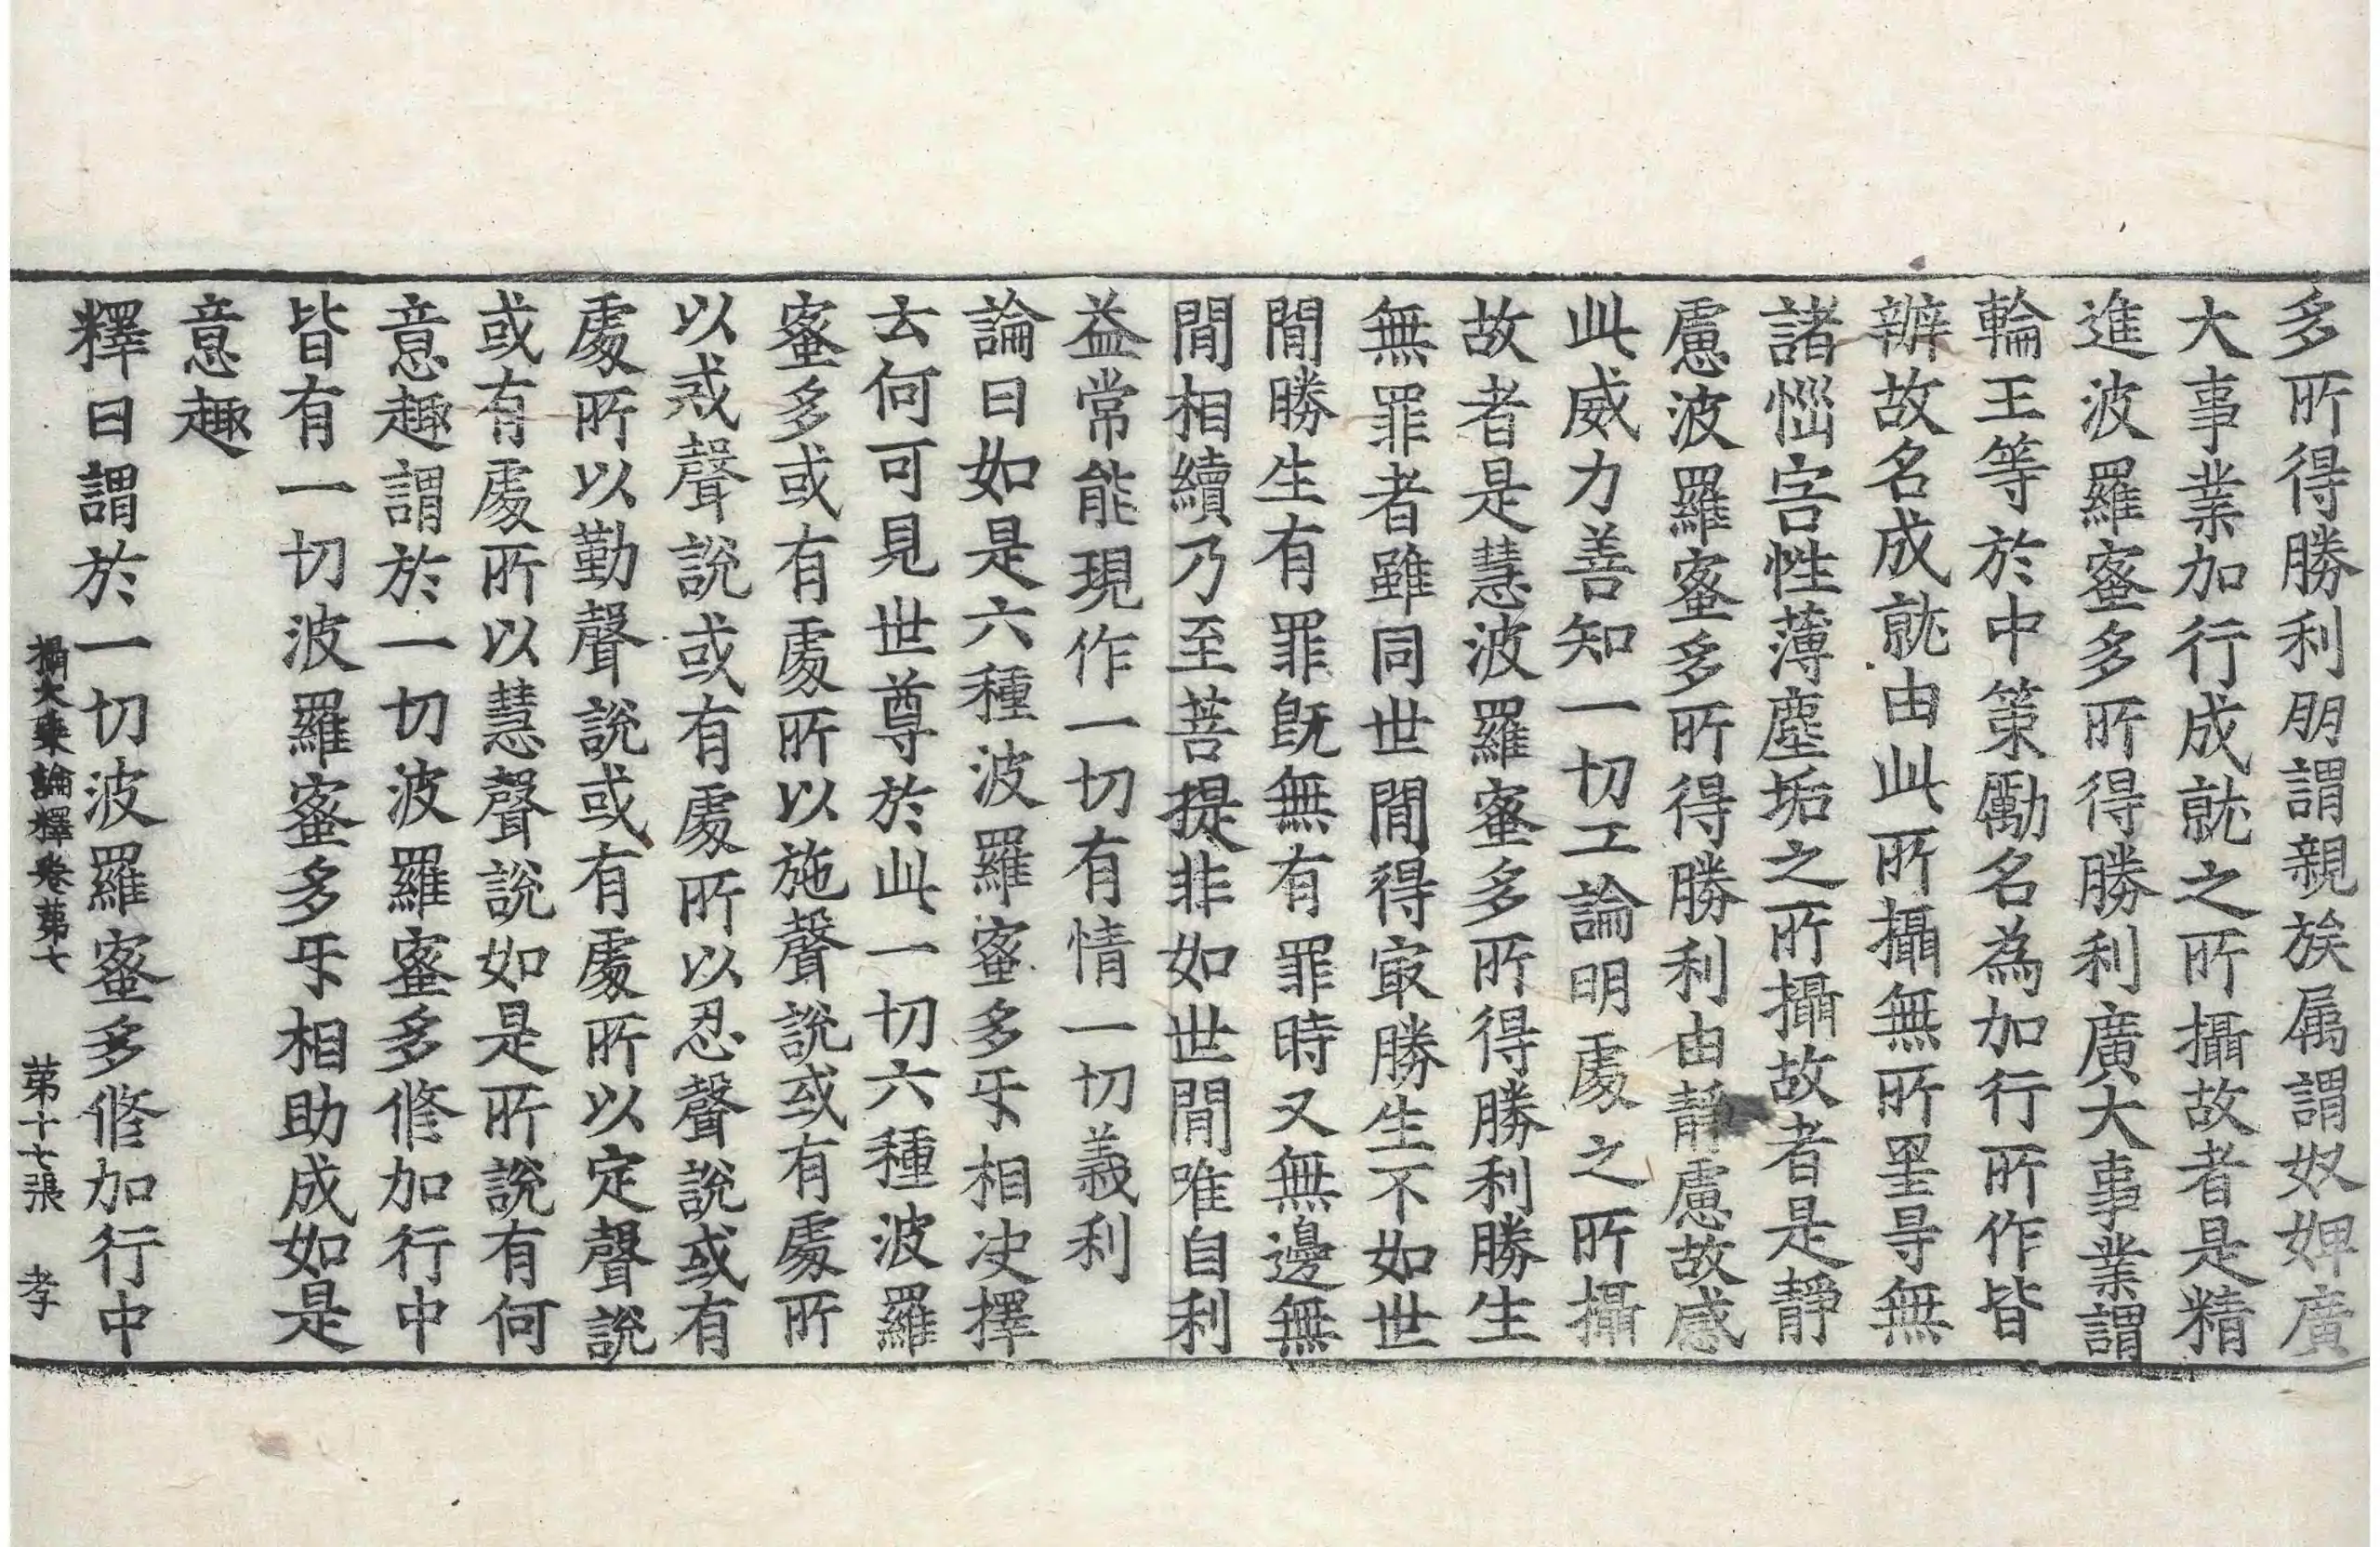 多所得勝利朋謂親族属謂奴婢廣
大事業加行成就之所攝故者是精
進波羅蜜多所得勝利廣大事業謂
輪王等於中策勵名為加行所作皆
辦故名成就由此所攝無所罣导無
諸惱害性薄塵垢之所攝故者是靜
慮波羅蜜多所得勝利由靜慮故感
此威力善知一切工論明處之所攝
故者是慧波羅蜜多所得勝利勝生
無罪者雖同世間得㝡勝生不如世
間勝生有罪旣無有罪時又無邊無
間相續乃至菩提非如世間唯自利
益常能現作一切有情一切義利
論曰如是六種波羅蜜多㸦相决擇
云何可見世尊於此一切六種波羅
蜜多或有處所以施聲說或有處所
以戒聲說或有處所以忍聲說或有
處所以勤聲說或有處所以定聲說
或有處所以慧聲說如是所說有何
意趣謂於一切波羅蜜多修加行中
皆有一切波羅蜜多㸦相助成如是
意趣
釋曰謂於一切波羅蜜多修加行中
攝大乘論釋卷苐七　苐十七張　孝